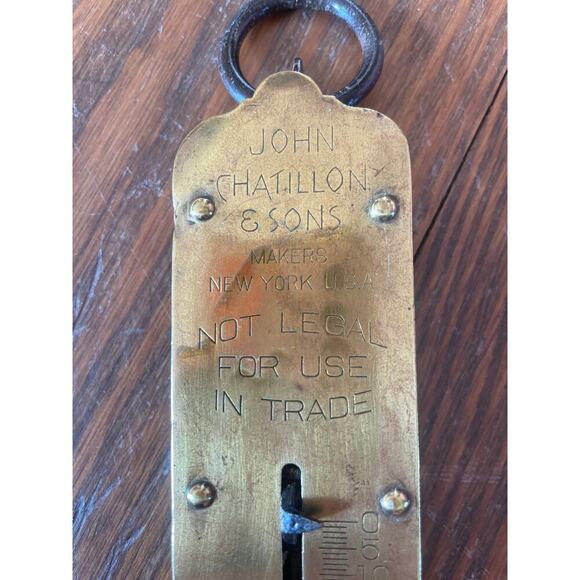 JOHN
CHATILLON
& SONS
MAKERS
NEW YORK U.S.A
NOT LEGAL
FOR USE
IN TRADE
0
5
10